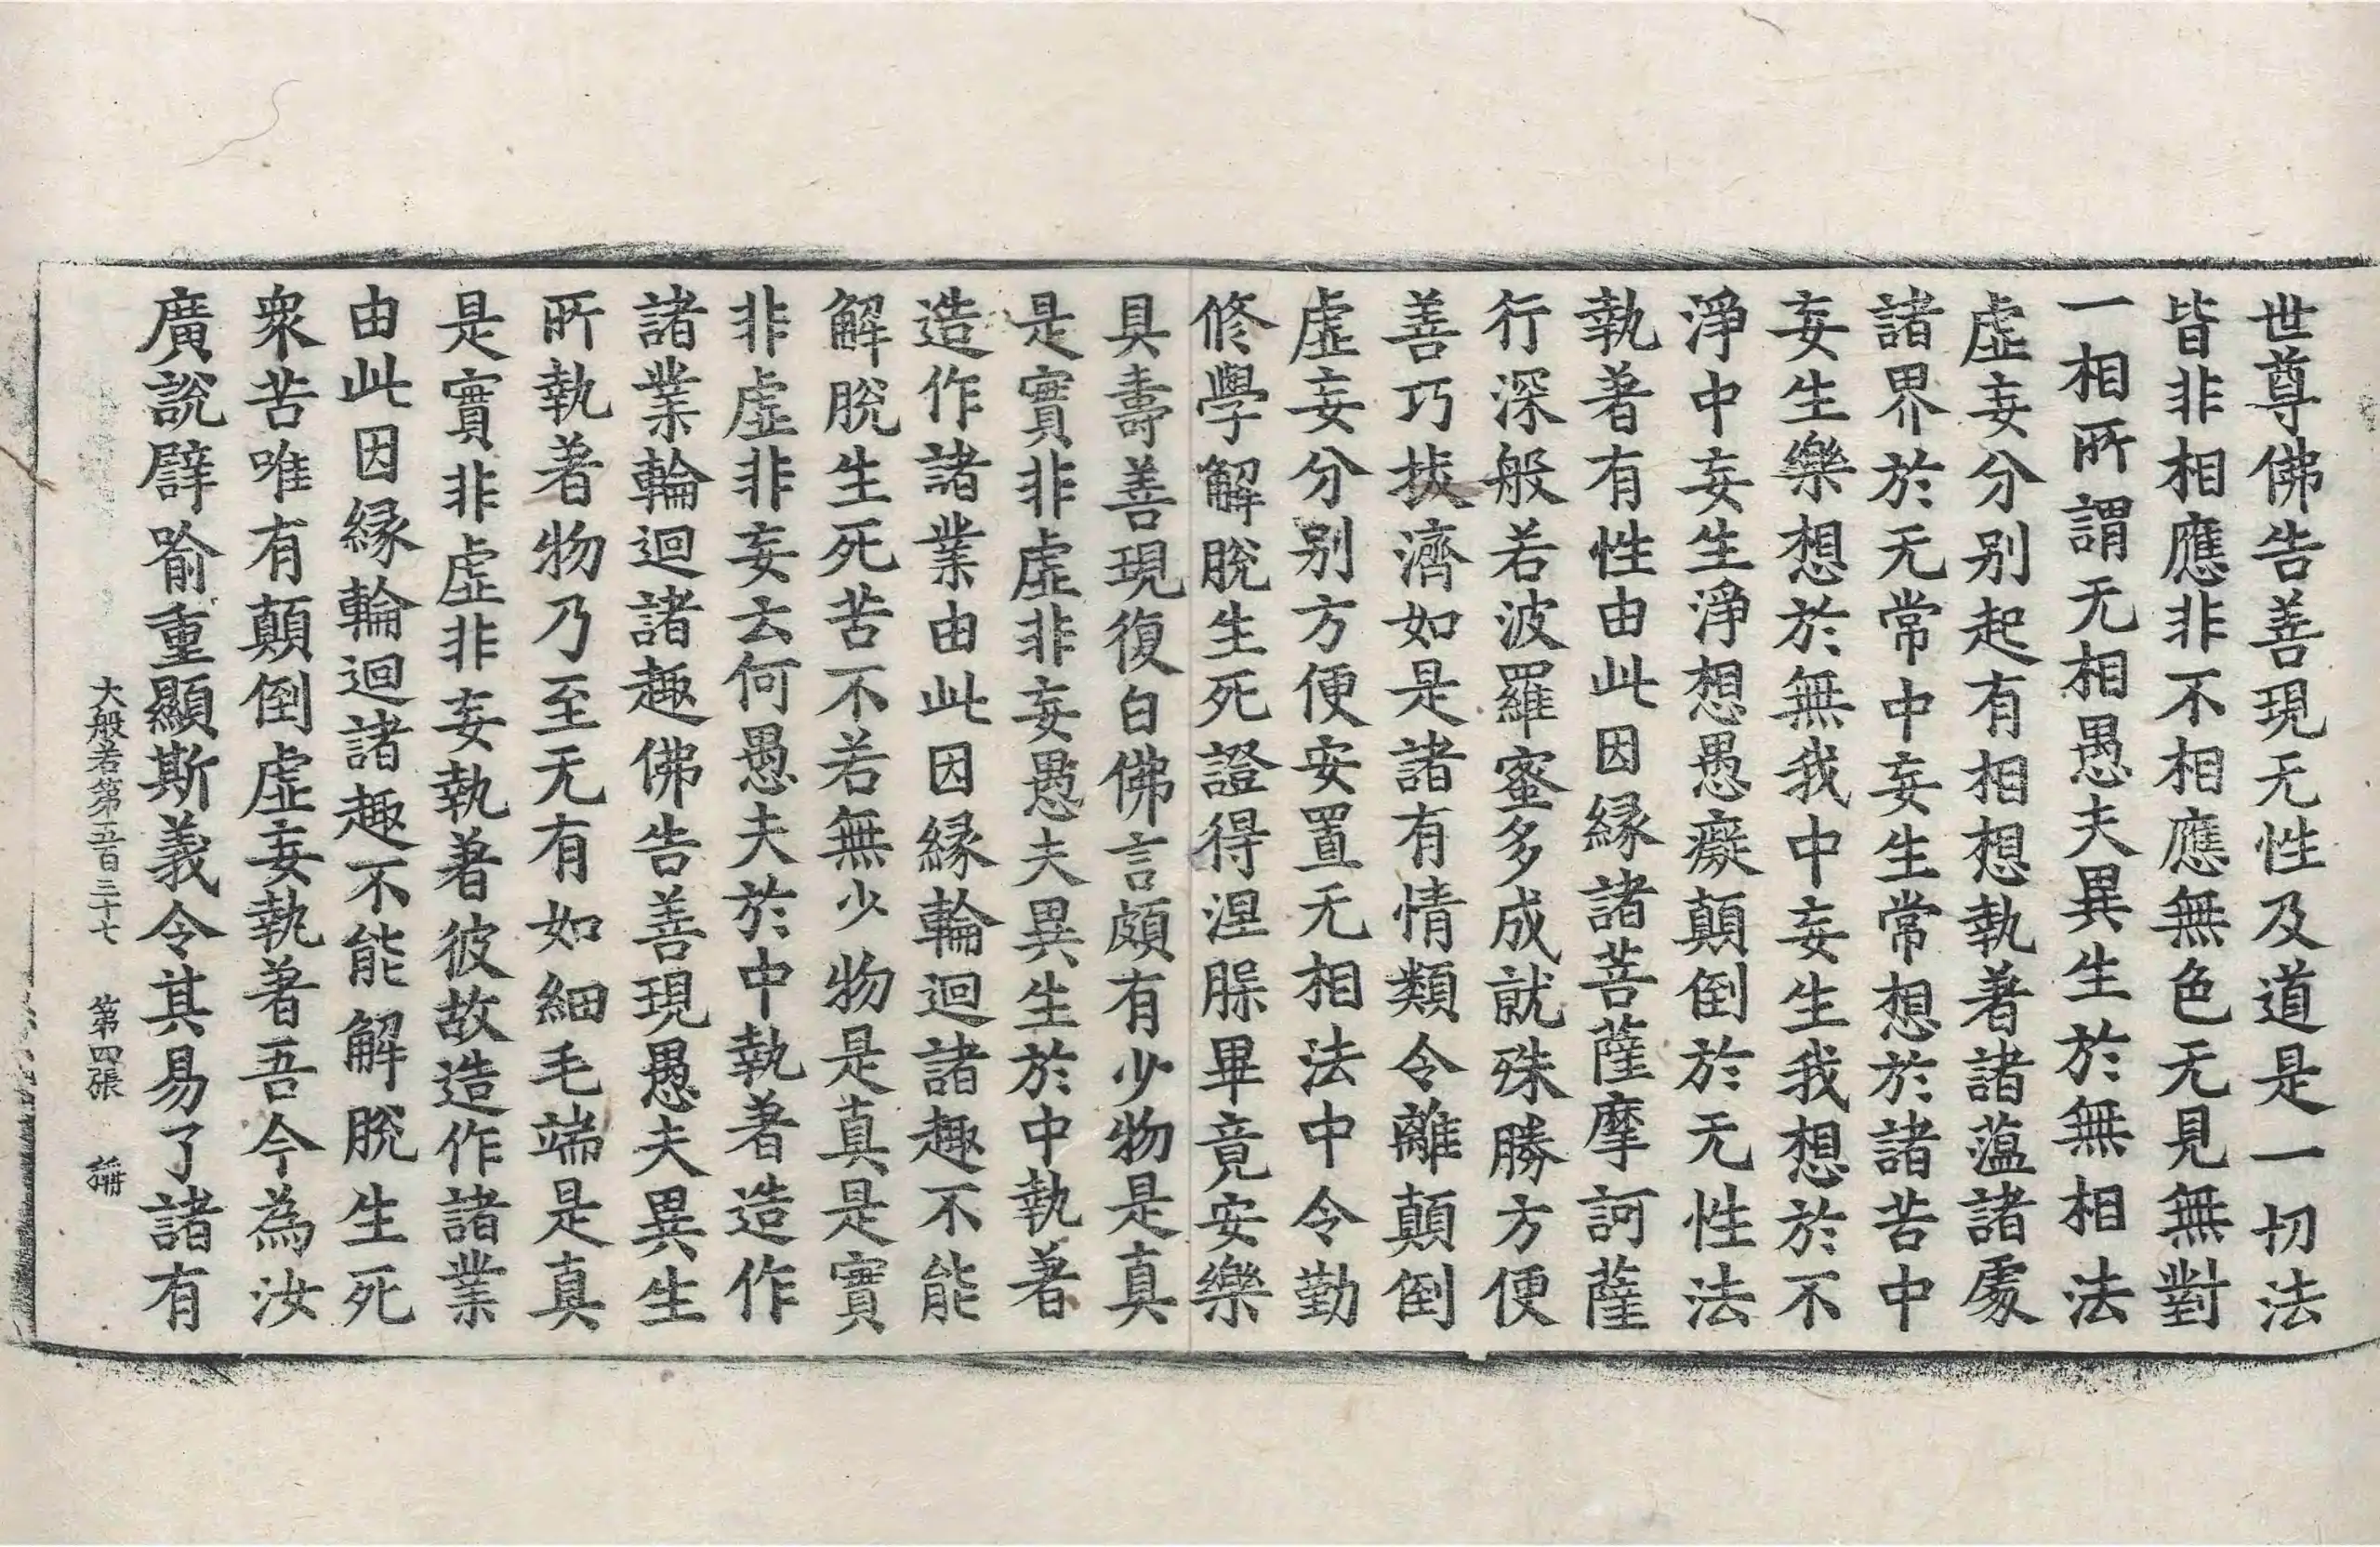 世尊佛告善現无性及道是一切法
皆非相應非不相應無色无見無對
一相所謂无相愚夫異生於無相法
虛妄分別起有相想執著諸蘊諸處
諸界於无常中妄生常想於諸苦中
妄生樂想於無我中妄生我想於不
淨中妄生淨想愚癡顛倒於无性法
執著有性由此因緣諸菩薩摩訶薩
行深般若波羅蜜多成就殊勝方便
善巧拔濟如是諸有情類令離顛倒
虛妄分別方便安置无相法中令勤
修學解脫生死證得涅槃畢竟安樂
具壽善現復白佛言頗有少物是真
是實非虛非妄愚夫異生於中執著
造作諸業由此因緣輪迴諸趣不能
解脫生死苦不若無少物是真是實
非虛非妄云何愚夫於中執著造作
諸業輪迴諸趣佛告善現愚夫異生
所執著物乃至无有如細毛端是真
是實非虛非妄執著彼故造作諸業
由此因緣輪迴諸趣不能解脫生死
眾苦唯有顛倒虛妄執著吾今為汝
廣說譬喻重顯斯義令其易了諸有
大般若第五百三十七 第四張